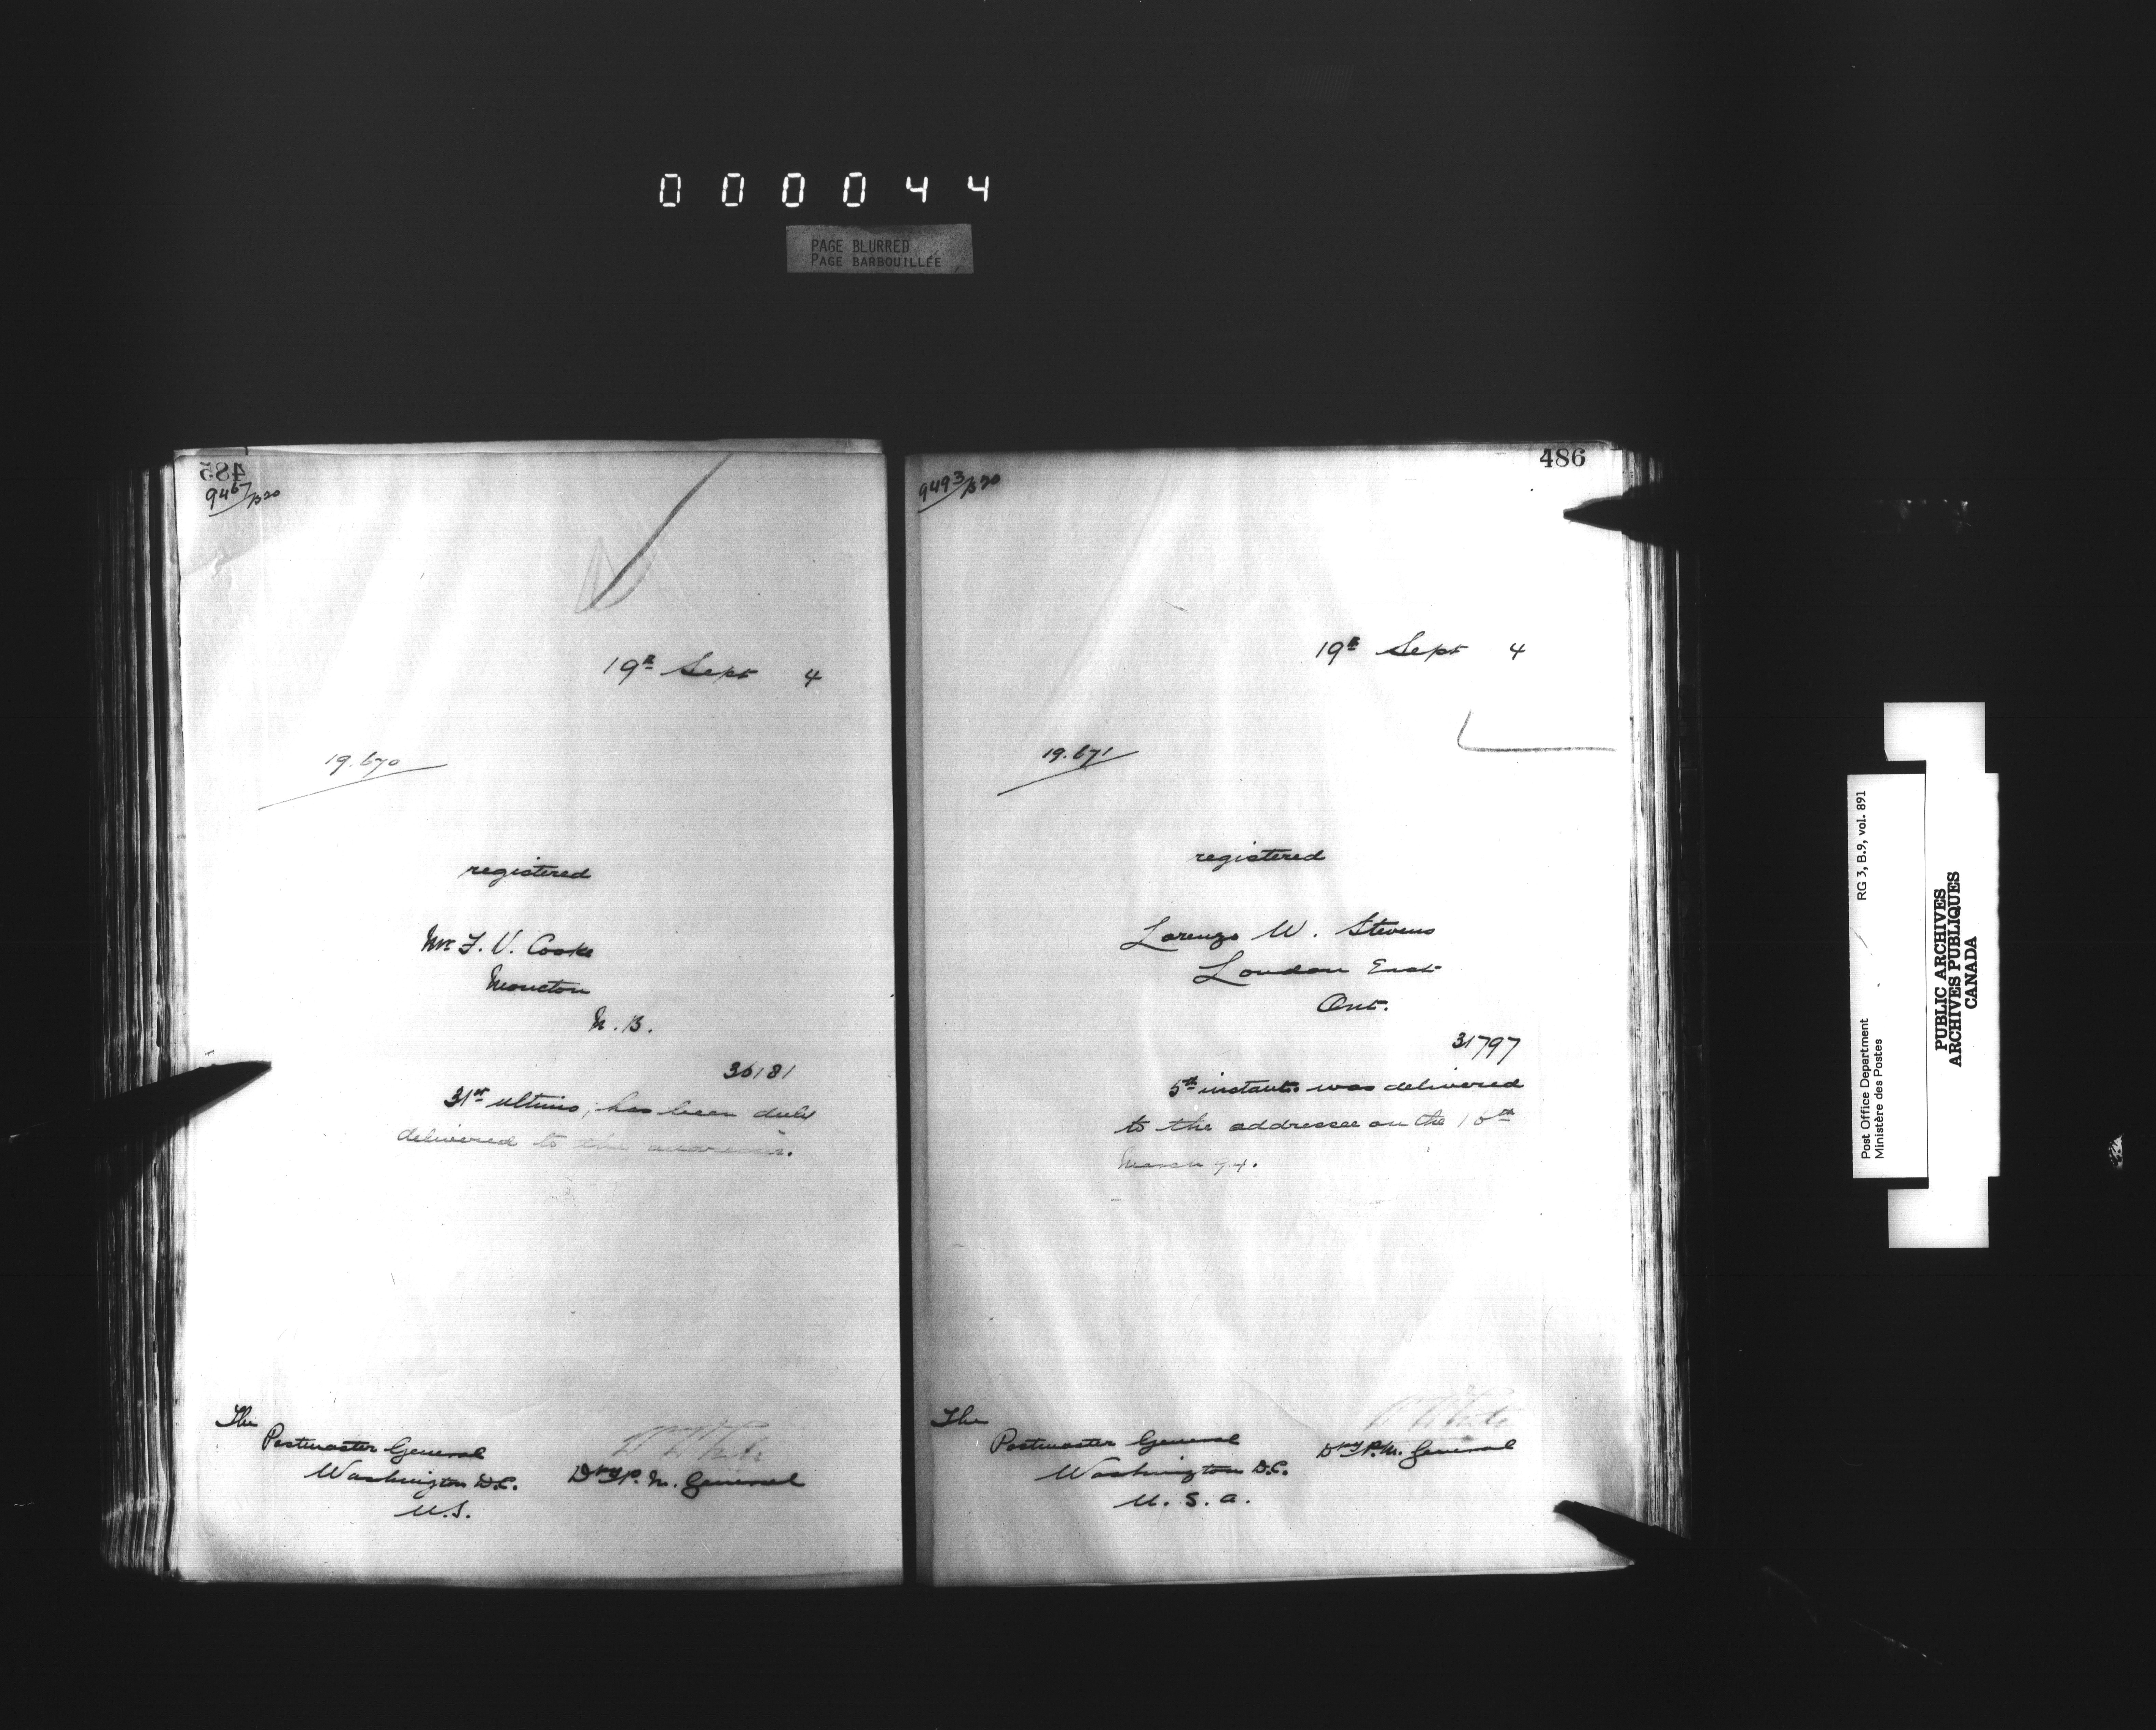 000044
PAGE BLURRED
PAGE BARBOUILLÉE
485
9467/B20
19th Sept 4
19.670
registered
Mr F. V. Cooke
Moncton
N. B.
36181
31st ultimo, has been duly
delivered to the addressee.
The
Postmaster General
Washington D.C.
U.S.
W White
Dy P. M. General
486
9493/B20
19th Sept 4
19.671
registered
Lorenzo W. Stevens
London East
Ont.
31797
5th instant was delivered
to the addressee on the 10th
March 94.
The
Postmaster General
Washington D.C.
U. S. A.
W White
Dy P. M. General
Post Office Department RG 3, B.9, vol. 891
Ministère des Postes
PUBLIC ARCHIVES
ARCHIVES PUBLIQUES
CANADA